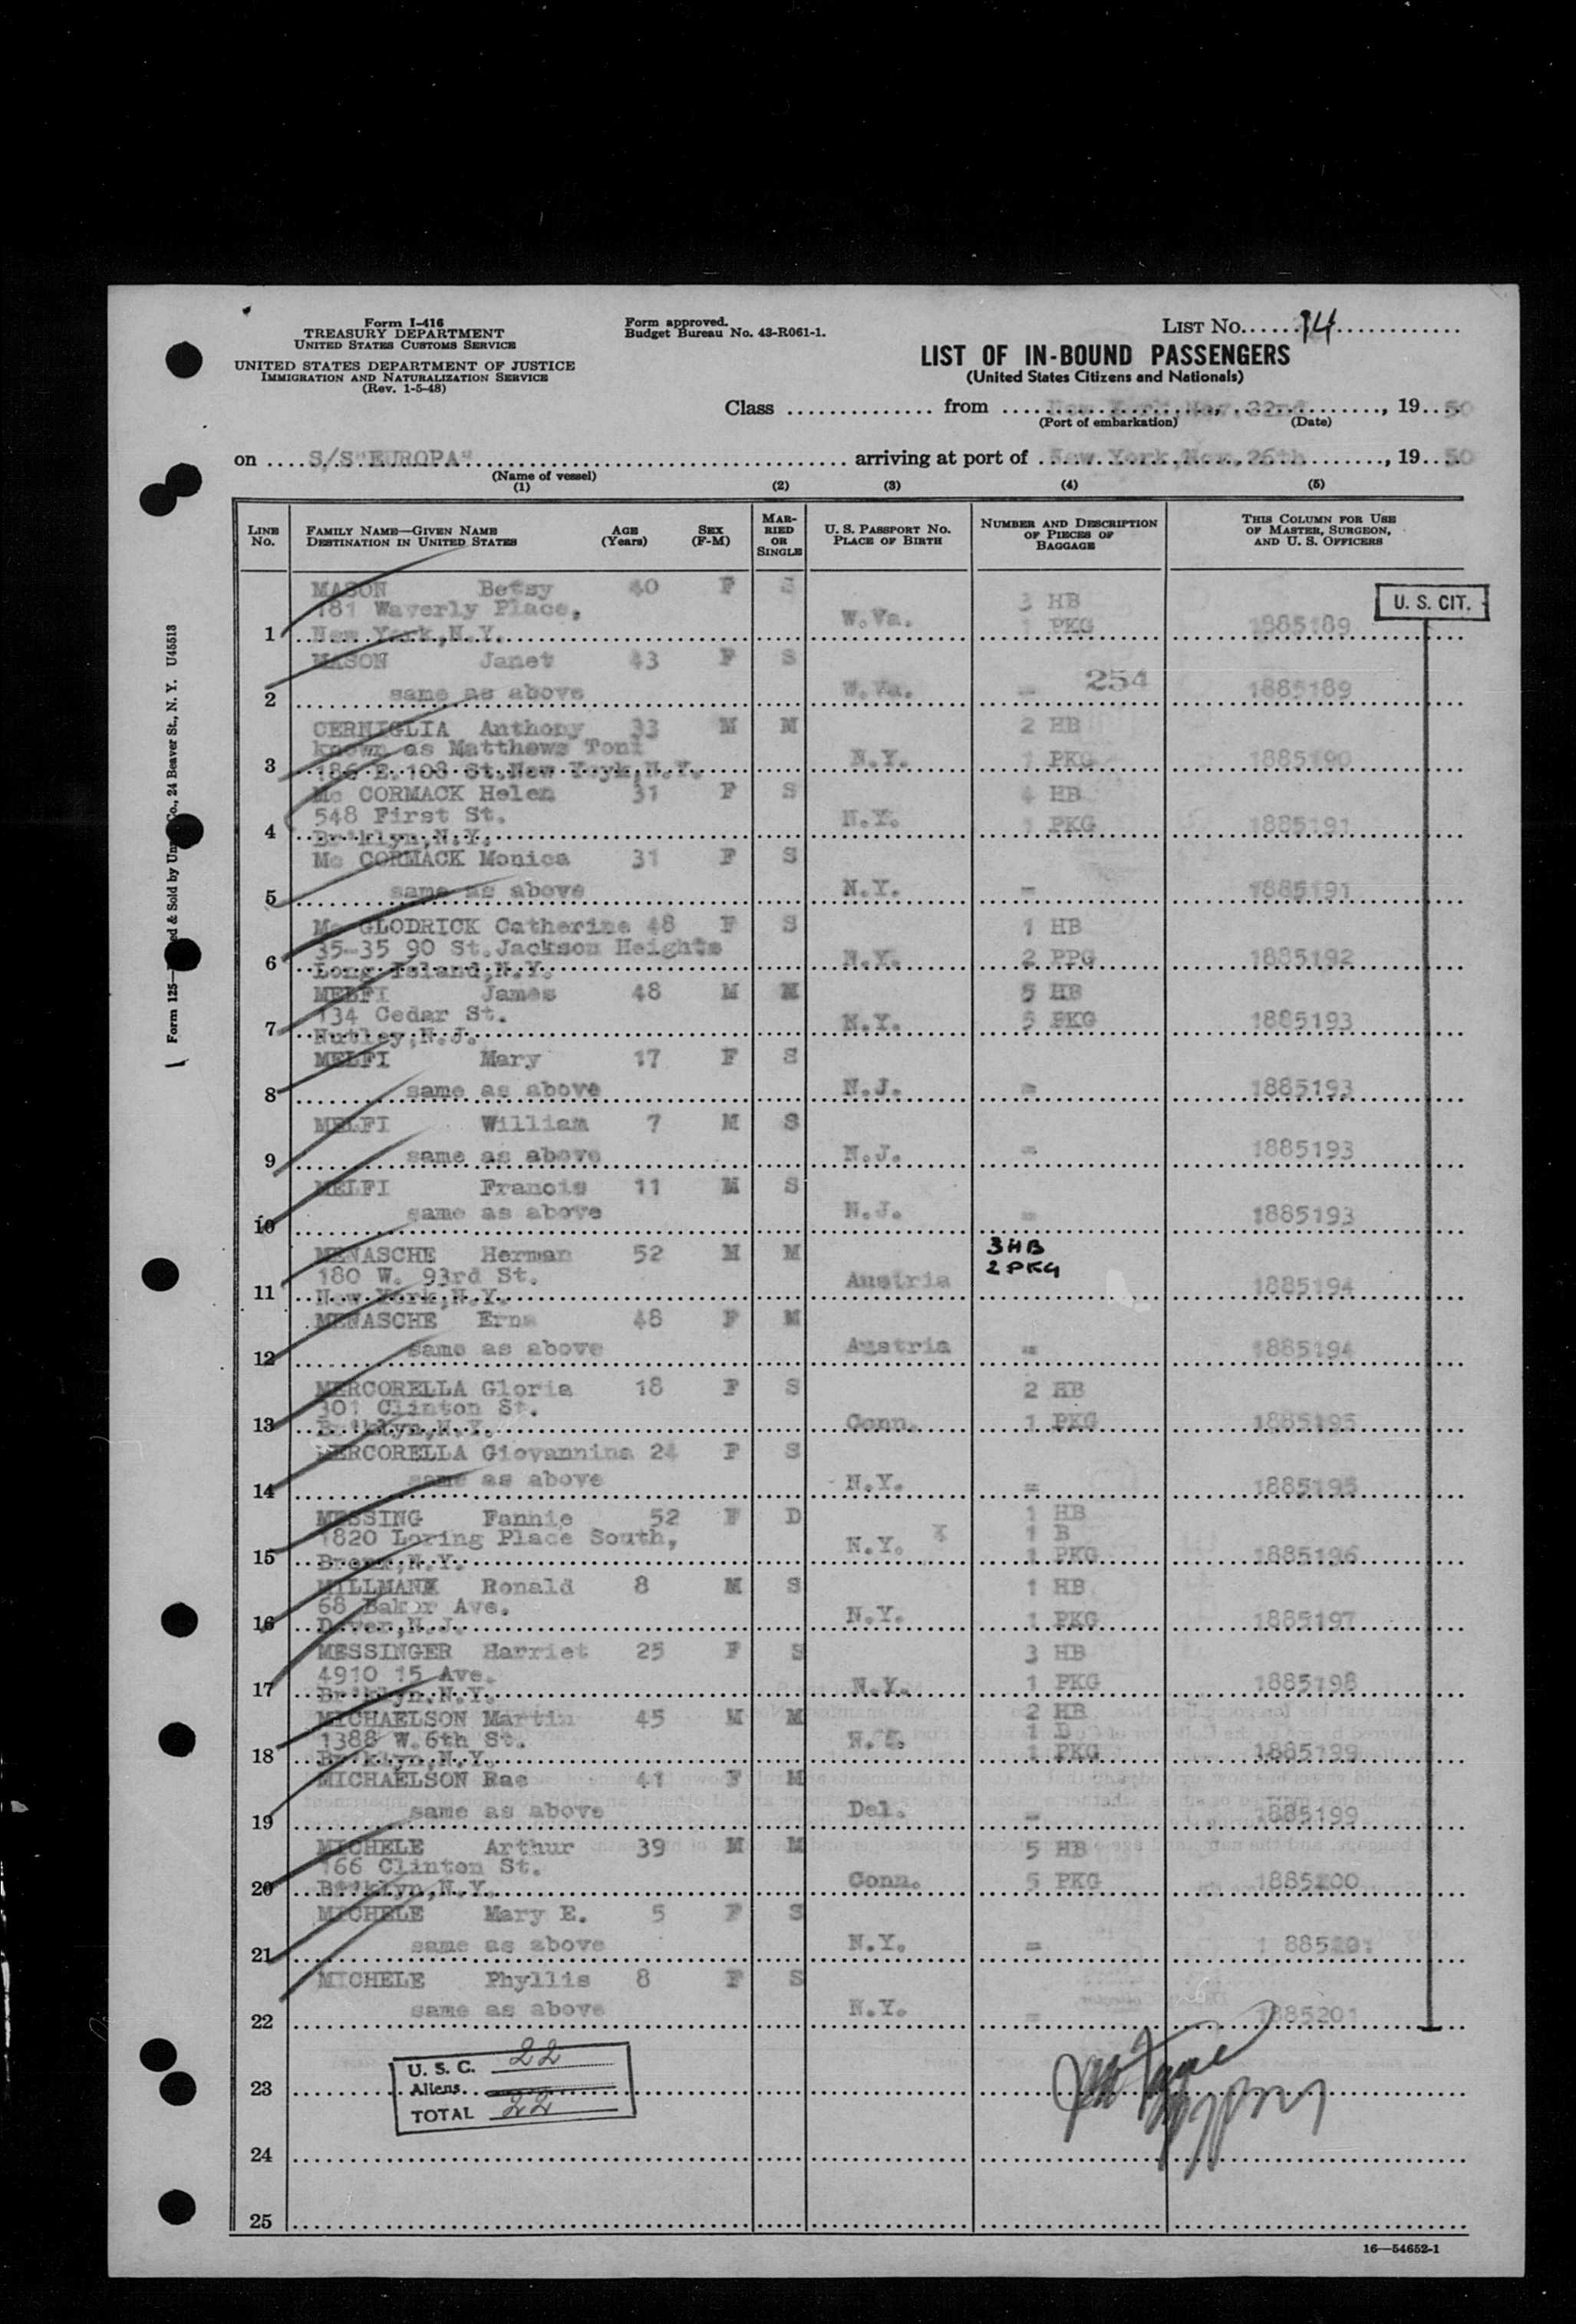 Form I-416
TREASURY DEPARTMENT
UNITED STATES CUSTOMS SERVICE
UNITED STATES DEPARTMENT OF JUSTICE
IMMIGRATION AND NATURALIZATION SERVICE
(Rev. 1-5-48)
Form approved.
Budget Bureau No. 43-R061-1.
LIST No. 14
LIST OF IN-BOUND PASSENGERS
(United States Citizens and Nationals)
Class from New York, 22nd, 19 50
(Port of embarkation) (Date)
on S/S "EUROPA" arriving at port of New York, Nov, 26th, 19 50
(Name of vessel)
(1) (2) (3) (4) (5)
LINE No. FAMILY NAME—GIVEN NAME DESTINATION IN UNITED STATES AGE (Years) SEX (F-M) MARRIED OR SINGLE U. S. PASSPORT No. PLACE OF BIRTH NUMBER AND DESCRIPTION OF PIECES OF BAGGAGE THIS COLUMN FOR USE OF MASTER, SURGEON, AND U. S. OFFICERS
U. S. CIT.
MASON Betsy 40 F S 3 HB
181 Waverly Place,
1 New York, N.Y. W.Va. 1 PKG 1885189
MASON Janet 43 F S
254
2 same as above W.Va. - 1885189
CERNIGLIA Anthony 33 M M 2 HB
known as Matthews Toni
3 186 E. 108 St. New Yoyk, N.Y. N.Y. 1 PKG 1885190
Mc CORMACK Helen 31 F S 4 HB
548 First St.
4 Br'klyn, N.Y. N.Y. 1 PKG 1885191
Mc CORMACK Monica 31 F S
5 same as above N.Y. - 1885191
Mc GLODRICK Catherine 48 F S 1 HB
35-35 90 St. Jackson Heights
6 Long Island, N.Y. N.Y. 2 PPG 1885192
MELFI James 48 M M 5 HB
134 Cedar St.
7 Nutley, N.J. N.Y. 5 PKG 1885193
MELFI Mary 17 F S
8 same as above N.J. - 1885193
MELFI William 7 M S
9 same as above N.J. - 1885193
MELFI Francis 11 M S
10 same as above N.J. - 1885193
MENASCHE Herman 52 M M 3 HB
180 W. 93rd St. 2 PKG
11 New York, N.Y. Austria 1885194
MENASCHE Erna 48 F M
12 same as above Austria - 1885194
MERCORELLA Gloria 18 F S 2 HB
301 Clinton St.
13 Br'klyn, N.Y. Conn. 1 PKG 1885195
MERCORELLA Giovannina 24 F S
14 same as above N.Y. - 1885195
MESSING Fannie 52 F D 1 HB
1820 Loring Place South, 1 B
15 Bronx, N.Y. N.Y. 1 PKG 1885196
MILLMANN Ronald 8 M S 1 HB
68 Baker Ave.
16 Dover, N.J. N.Y. 1 PKG 1885197
MESSINGER Harriet 25 F S 3 HB
4910 15 Ave.
17 Br'klyn, N.Y. N.Y. 1 PKG 1885198
MICHAELSON Martin 45 M M 2 HB
1388 W. 6th St. 1 D
18 Br'klyn, N.Y. 1 PKG 1885199
MICHAELSON Rae 41 F M
19 same as above Del. - 1885199
MICHELE Arthur 39 M M 5 HB
166 Clinton St.
20 Br'klyn, N.Y. Conn. 5 PKG 1885200
MICHELE Mary E. 5 F S
21 same as above N.Y. -
MICHELE Phyllis 8 F S
22 same as above N.Y. - 1885201
U. S. C. 22
23 Aliens
TOTAL 22
24
25
16—54652-1
Co., 24 Beaver St., N. Y. U45513